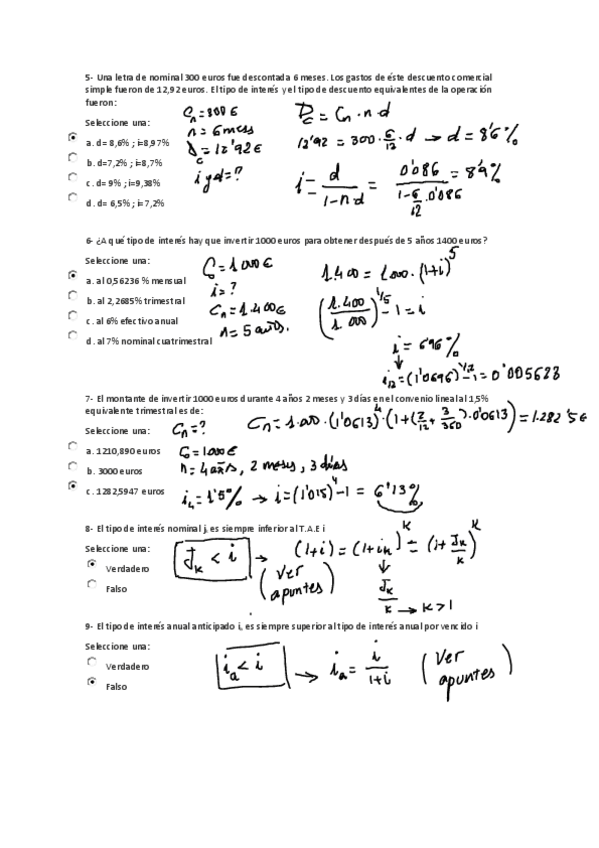 5- Una letra de nominal 300 euros fue descontada 6 meses. Los gastos de éste descuento comercial
simple fueron de 12,92 euros. El tipo de interés y el tipo de descuento equivalentes de la operación
fueron:
Cn=300€
Seleccione una:
n=6mess
Dc=12'92€
i y d=?
Dc = Cn·n·d
12'92 = 300·6/12·d → d=8'6%
i = d/1-n·d = 0'086/1-6/12·0'086 = 8'9%
a. d= 8,6% ; i=8,97%
b. d=7,2% ; i=8,7%
c. d= 9% ; i=9,38%
d. d= 6,5% ; i=7,2%
6- ¿A qué tipo de interés hay que invertir 1000 euros para obtener después de 5 años 1400 euros?
Seleccione una:
C0=1000€
i=?
Cn=1.400€
n=5 años.
1.400 = 1000·(1+i)^5
(1.400/1.000)^1/5 -1=i
i=6'96%
↓
i12=(1'0696)^1/12-1=0'005623
a. al 0,56236 % mensual
b. al 2,2685% trimestral
c. al 6% efectivo anual
d. al 7% nominal cuatrimestral
7- El montante de invertir 1000 euros durante 4 años 2 meses y 3 días en el convenio lineal al 1,5%
equivalente trimestral es de:
Seleccione una:
Cn=?
Cn=1.000·(1'0613)^4·(1+(2/12+3/360)·0'0613)=1.282'56
C0=1000€
n=4años, 2 meses, 3 días
i4=1'5% → i=(1'015)^4-1=6'13%
a. 1210,890 euros
b. 3000 euros
c. 1282,5947 euros
8- El tipo de interés nominal j, es siempre inferior al T.A.E i
Seleccione una:
Jk < i → (1+i) = (1+ik)^k = (1+Jk/k)^k
(ver apuntes)
↓
Jk/k → k>1
Verdadero
Falso
9- El tipo de interés anual anticipado i, es siempre superior al tipo de interés anual por vencido i
Seleccione una:
ia < i → ia = i/1+i (ver apuntes)
Verdadero
Falso